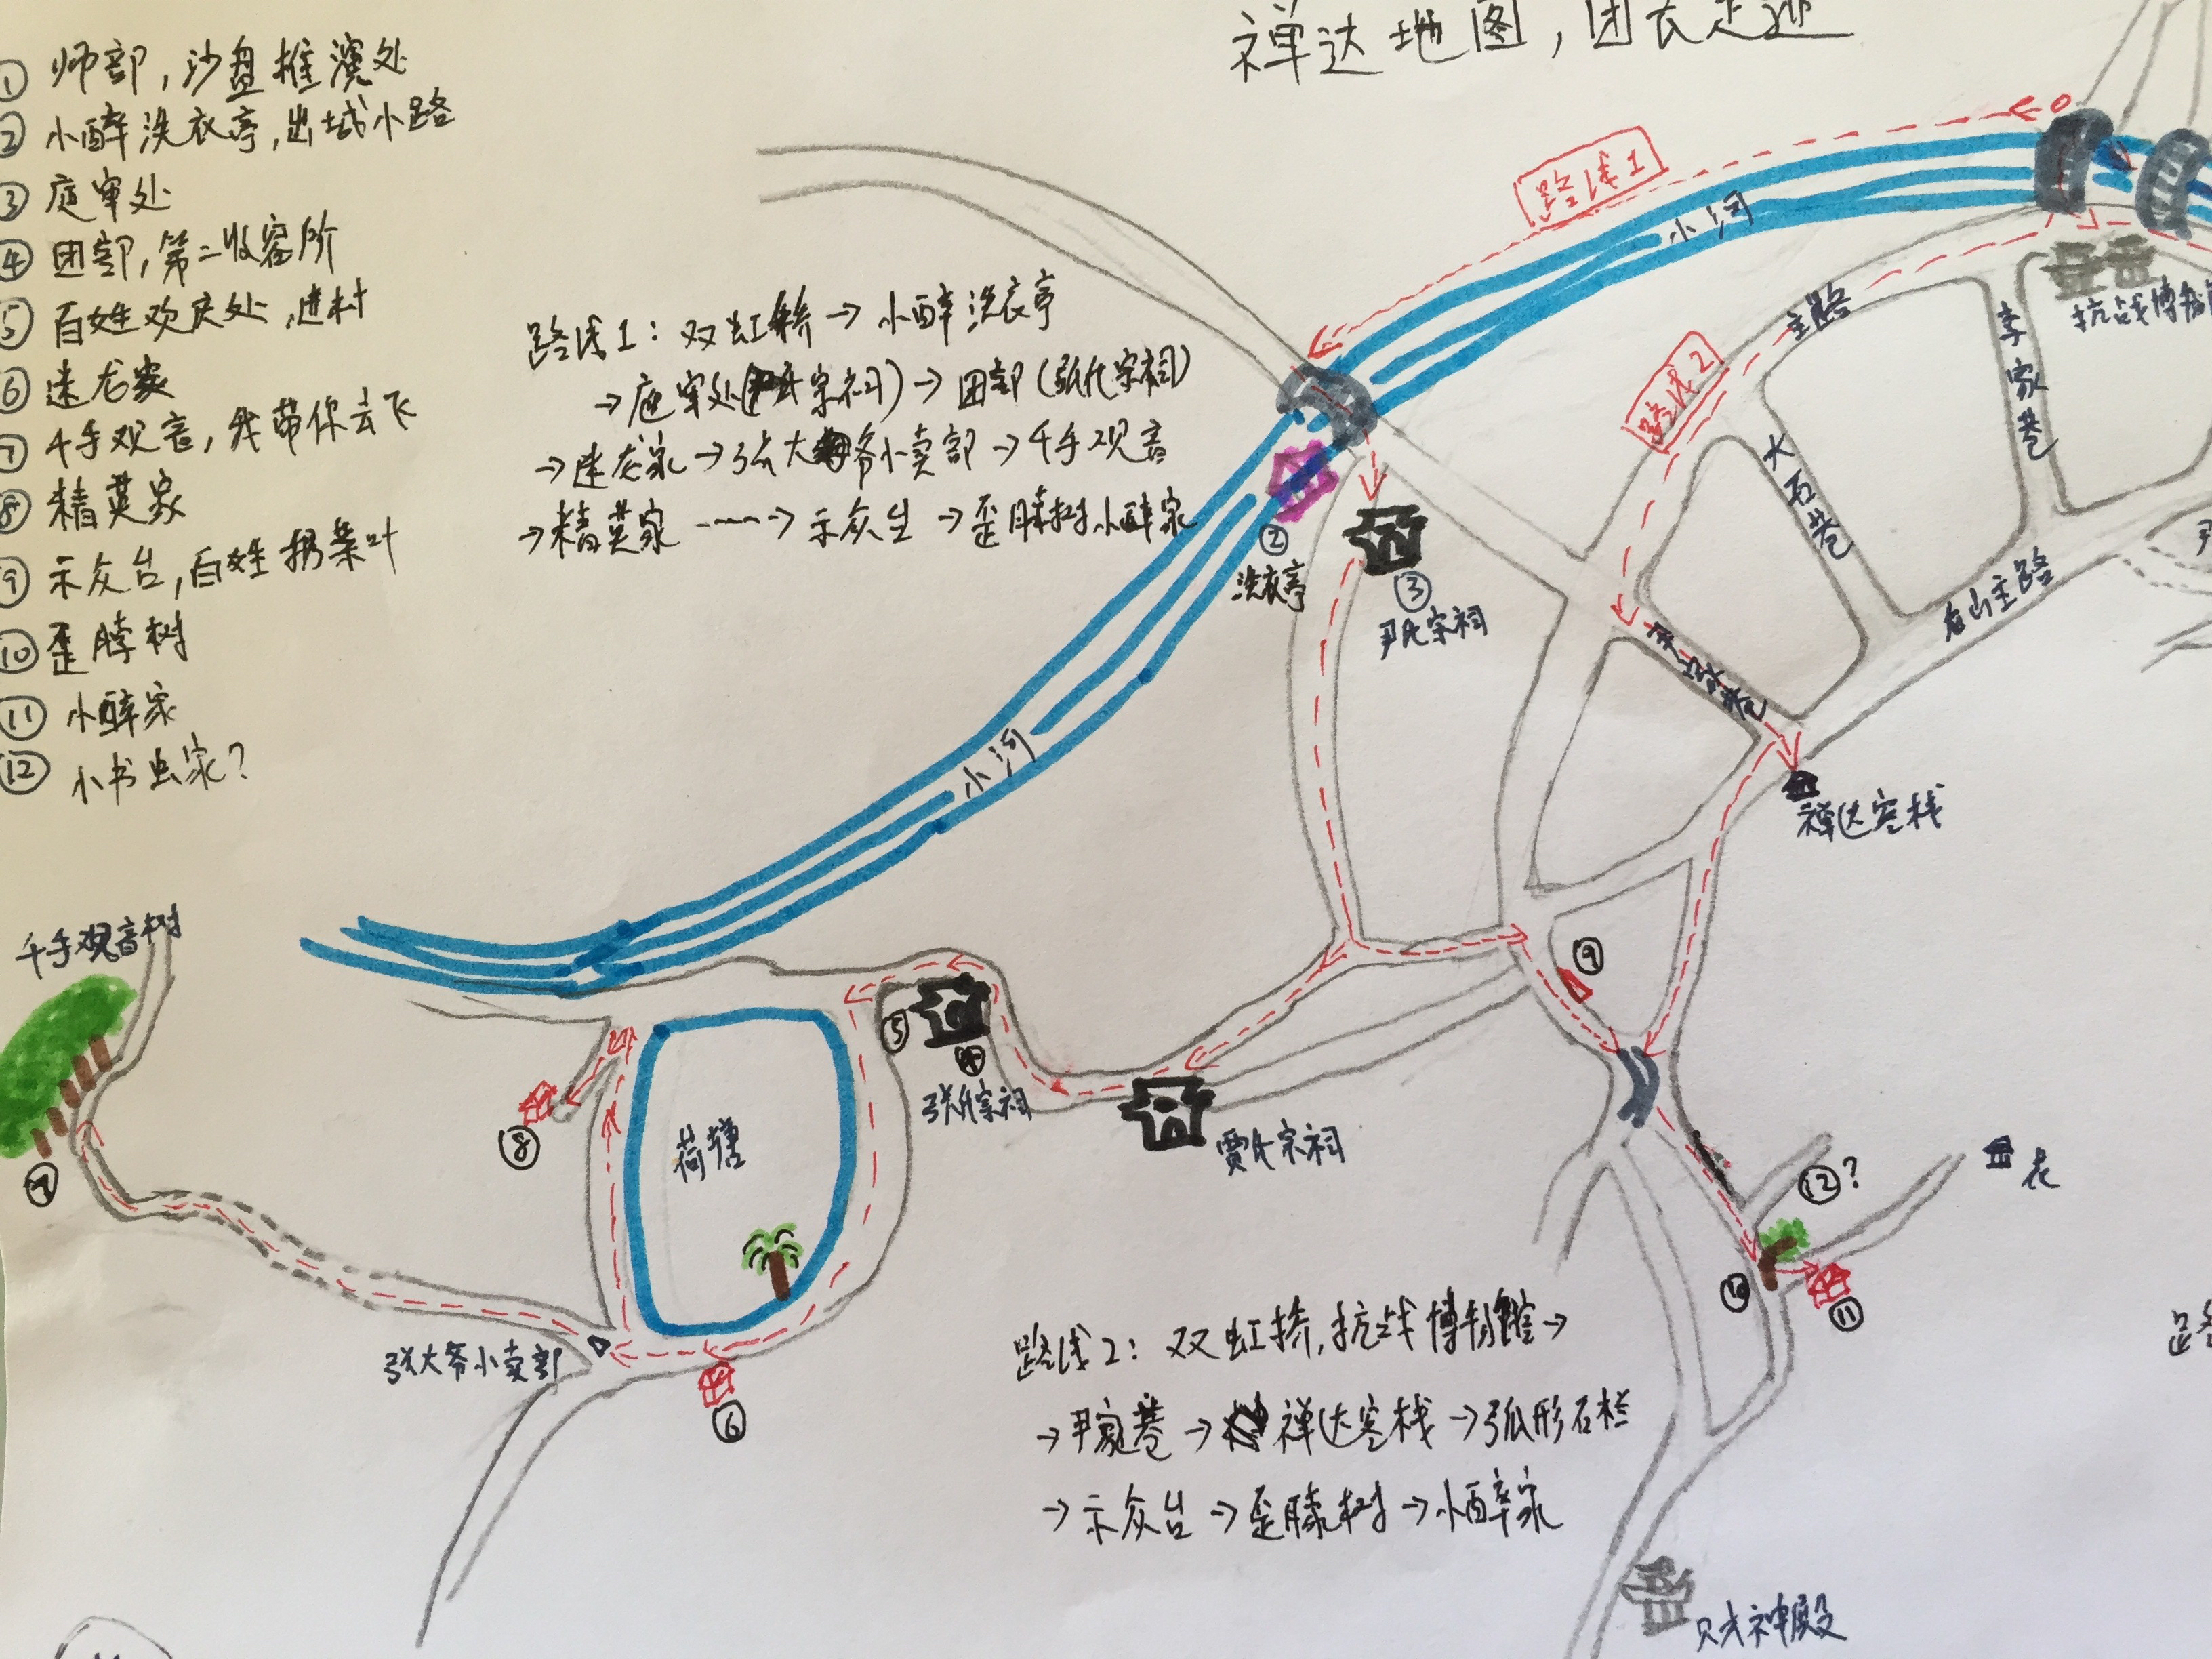 禅达地图，团长足迹
① 师部，沙盘推演处
② 小醉洗衣亭，出城小路
③ 庭审处
④ 团部，第二收容所
⑤ 百姓欢庆处，进村
⑥ 迷龙家
⑦ 千手观音，我带你去飞
⑧ 精英家
⑨ 示众台，百姓扔菜叶
⑩ 歪脖树
⑪ 小醉家
⑫ 小书虫家？
路线1：双虹桥→小醉洗衣亭
→庭审处(尹氏宗祠)→团部(张氏宗祠)
→迷龙家→张大爷小卖部→千手观音
→精英家----→示众台→歪脖树小醉家
路线1
小河
主路
路线2
抗战博物
李家巷
大石巷
尹家巷
主路
尹
②
洗衣亭
③
尹氏宗祠
禅达客栈
小河
千手观音树
⑨
⑤
④
张氏宗祠
贾氏宗祠
荷塘
⑧
⑫？
⑩
⑪
张大爷小卖部
⑥
路线2：双虹桥，抗战博物馆→
→尹家巷→禅达客栈→弧形石栏
→示众台→歪脖树→小醉家
财神殿